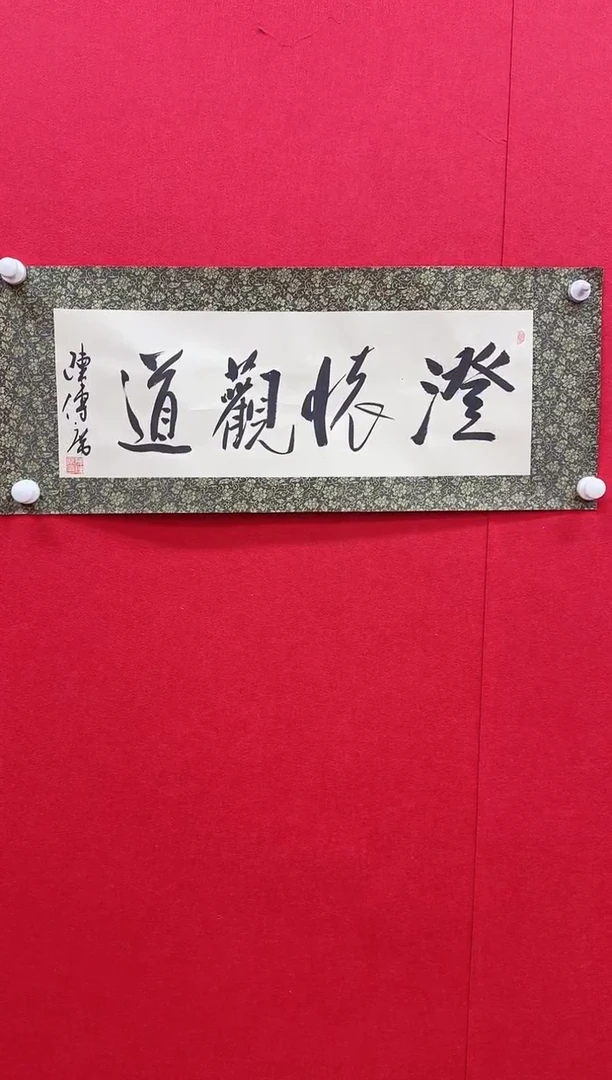 澄懷觀道
陳傳席